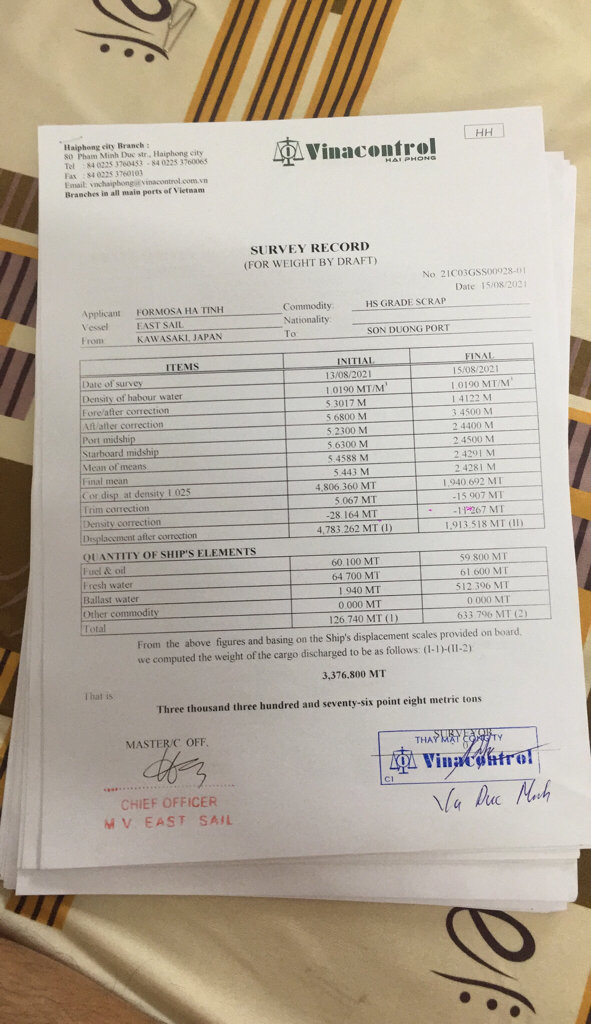 HH
Haiphong city Branch :
80 Pham Minh Duc str., Haiphong city
Tel : 84 0225 3760453 - 84 0225 3760065
Fax : 84 0225 3760103
Email: vnchaiphong@vinacontrol.com.vn
Branches in all main ports of Vietnam
Vinacontrol
HAI PHONG
SURVEY RECORD
(FOR WEIGHT BY DRAFT)
No. 21C03GSS00928-01
Date: 15/08/2021
Applicant: FORMOSA HA TINH Commodity: HS GRADE SCRAP
Vessel EAST SAIL Nationality:
From: KAWASAKI, JAPAN To: SON DUONG PORT
ITEMS INITIAL FINAL
Date of survey 13/08/2021 15/08/2021
Density of habour water 1.0190 MT/M³ 1.0190 MT/M³
Fore/after correction 5.3017 M 1.4122 M
Aft/after correction 5.6800 M 3.4500 M
Port midship 5.2300 M 2.4400 M
Starboard midship 5.6300 M 2.4500 M
Mean of means 5.4588 M 2.4291 M
Final mean 5.443 M 2.4281 M
Cor disp. at density 1.025 4,806.360 MT 1,940.692 MT
Trim correction 5.067 MT -15.907 MT
Density correction -28.164 MT -11.267 MT
Displacement after correction 4,783.262 MT (I) 1,913.518 MT (II)
QUANTITY OF SHIP'S ELEMENTS
Fuel & oil 60.100 MT 59.800 MT
Fresh water 64.700 MT 61.600 MT
Ballast water 1.940 MT 512.396 MT
Other commodity 0.000 MT 0.000 MT
Total 126.740 MT (1) 633.796 MT (2)
From the above figures and basing on the Ship's displacement scales provided on board,
we computed the weight of the cargo discharged to be as follows: (I-1)-(II-2)
3,376.800 MT
That is:
Three thousand three hundred and seventy-six point eight metric tons
MASTER/C OFF.
CHIEF OFFICER
M.V. EAST SAIL
SURVEYOR
THAY MẶT CÔNG TY
Vinacontrol
CI
Vu Duc Minh